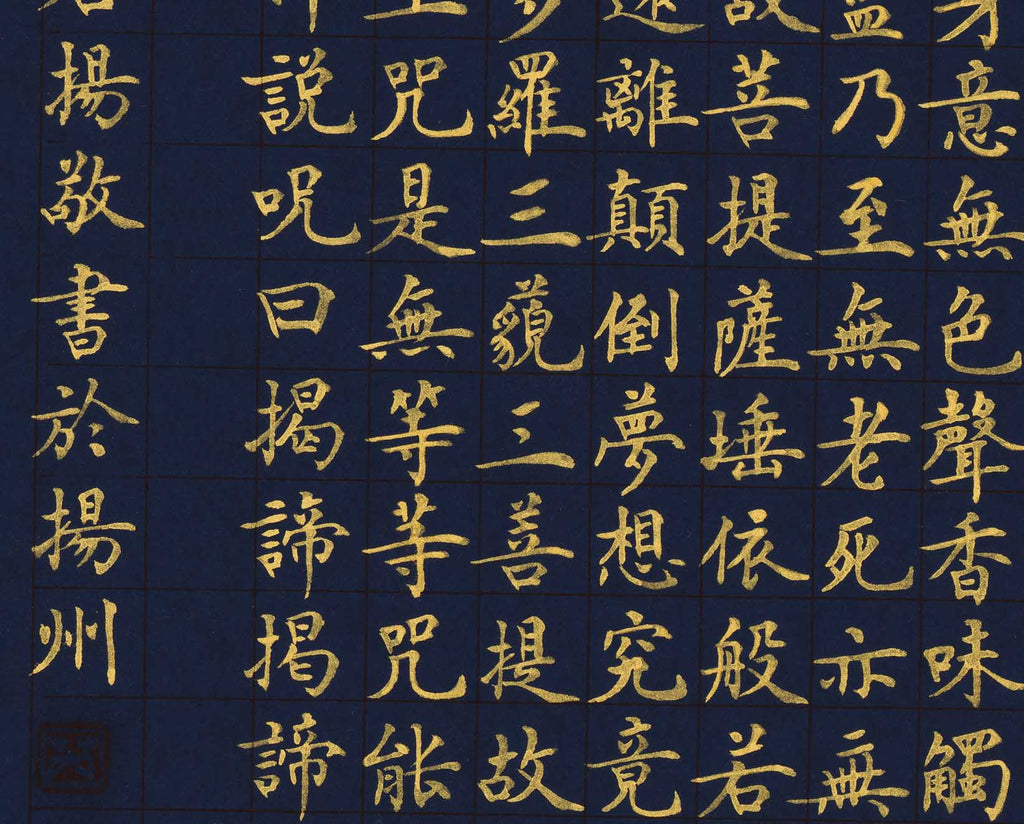 身意無色聲香味觸
盡乃至無老死亦無
故菩提薩埵依般若
遠離顛倒夢想究竟
多羅三藐三菩提故
上咒是無等等咒能
即説呪曰揭諦揭諦
揚敬書於揚州